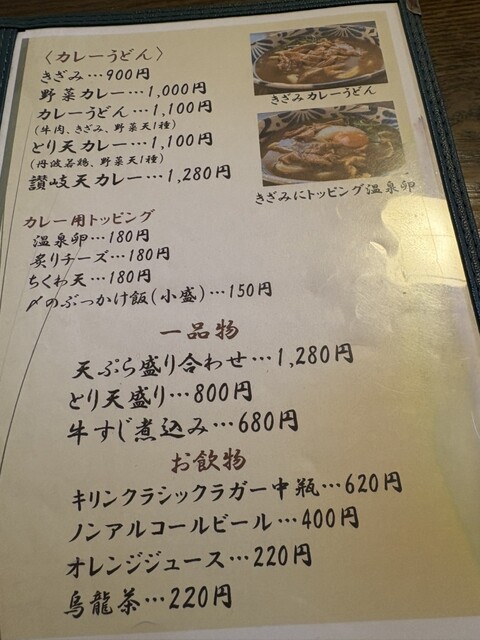 〈カレーうどん〉
きざみ…900円
野菜カレー…1,000円
カレーうどん…1,100円
(牛肉、きざみ、野菜天1種)
とり天カレー…1,100円
(丹波若鶏、野菜天1種)
讃岐天カレー…1,280円
きざみカレーうどん
きざみにトッピング温泉卵
カレー用トッピング
温泉卵…180円
炙りチーズ…180円
ちくわ天…180円
〆のぶっかけ飯(小盛)…150円
一品物
天ぷら盛り合わせ…1,280円
とり天盛り…800円
牛すじ煮込み…680円
お飲物
キリンクラシックラガー中瓶…620円
ノンアルコールビール…400円
オレンジジュース…220円
烏龍茶…220円